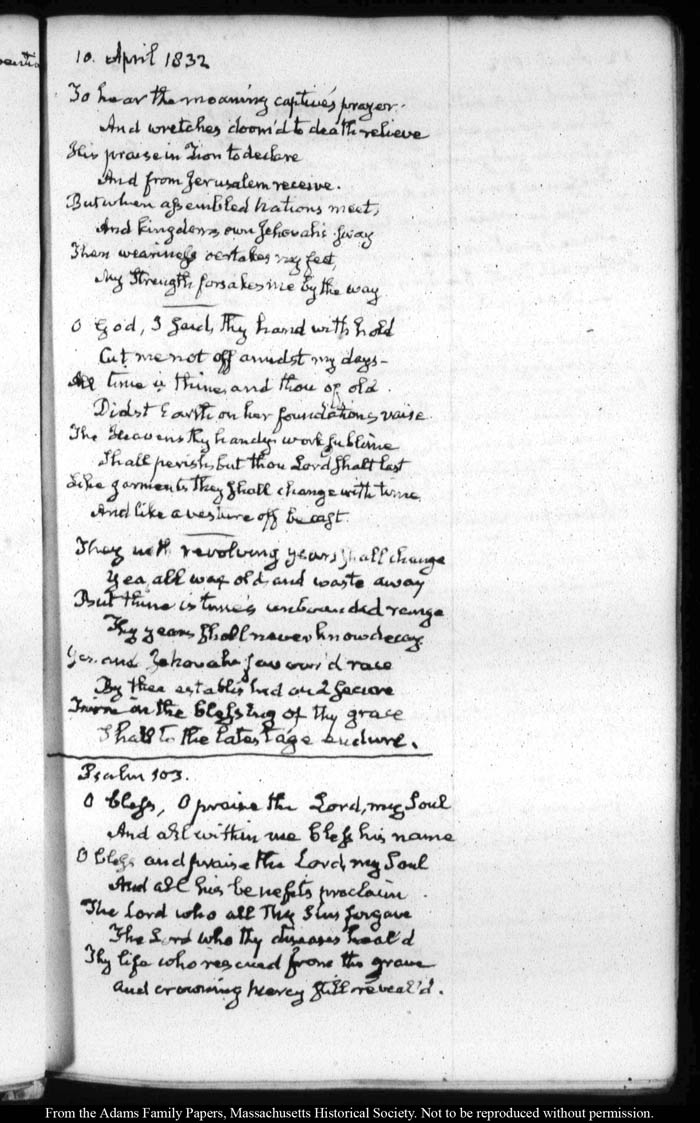 10. April 1832
To hear the moaning captive's prayer.
And wretches doom'd to death relieve
His praise in Zion to declare
And from Jerusalem receive.
But when assembled Nations meet,
And kingdoms own Jehovah's sway
Then weariness oertakes my feet,
My Strength forsakes me by the way
O God, I said, thy hand withhold
Cut me not off amidst my days—
All time is thine, and thou of old
Didst Earth on her foundations raise.
The Heavens thy handy work sublime
Shall perish, but thou Lord shalt last
Like garments they shall change with time,
And like a vesture off be cast.
They with revolving years shall change
Yea, all wax old, and waste away
But thine is time's unbounded range
Thy years shall never know decay
Yes. and Jehovah favour'd race
By thee established and secure
Firm in the blessing of thy grace
Shall to the latest age endure.
Psalm 103.
O bless, O praise the Lord, my Soul
And all within me bless his name
O bless and praise the Lord, my Soul
And all his benefits proclaim
The Lord who all Thy Sins forgave
The Lord who thy diseases heal'd
Thy life who rescued from the grave
And crowning mercy still reveal'd.
From the Adams Family Papers, Massachusetts Historical Society. Not to be reproduced without permission.